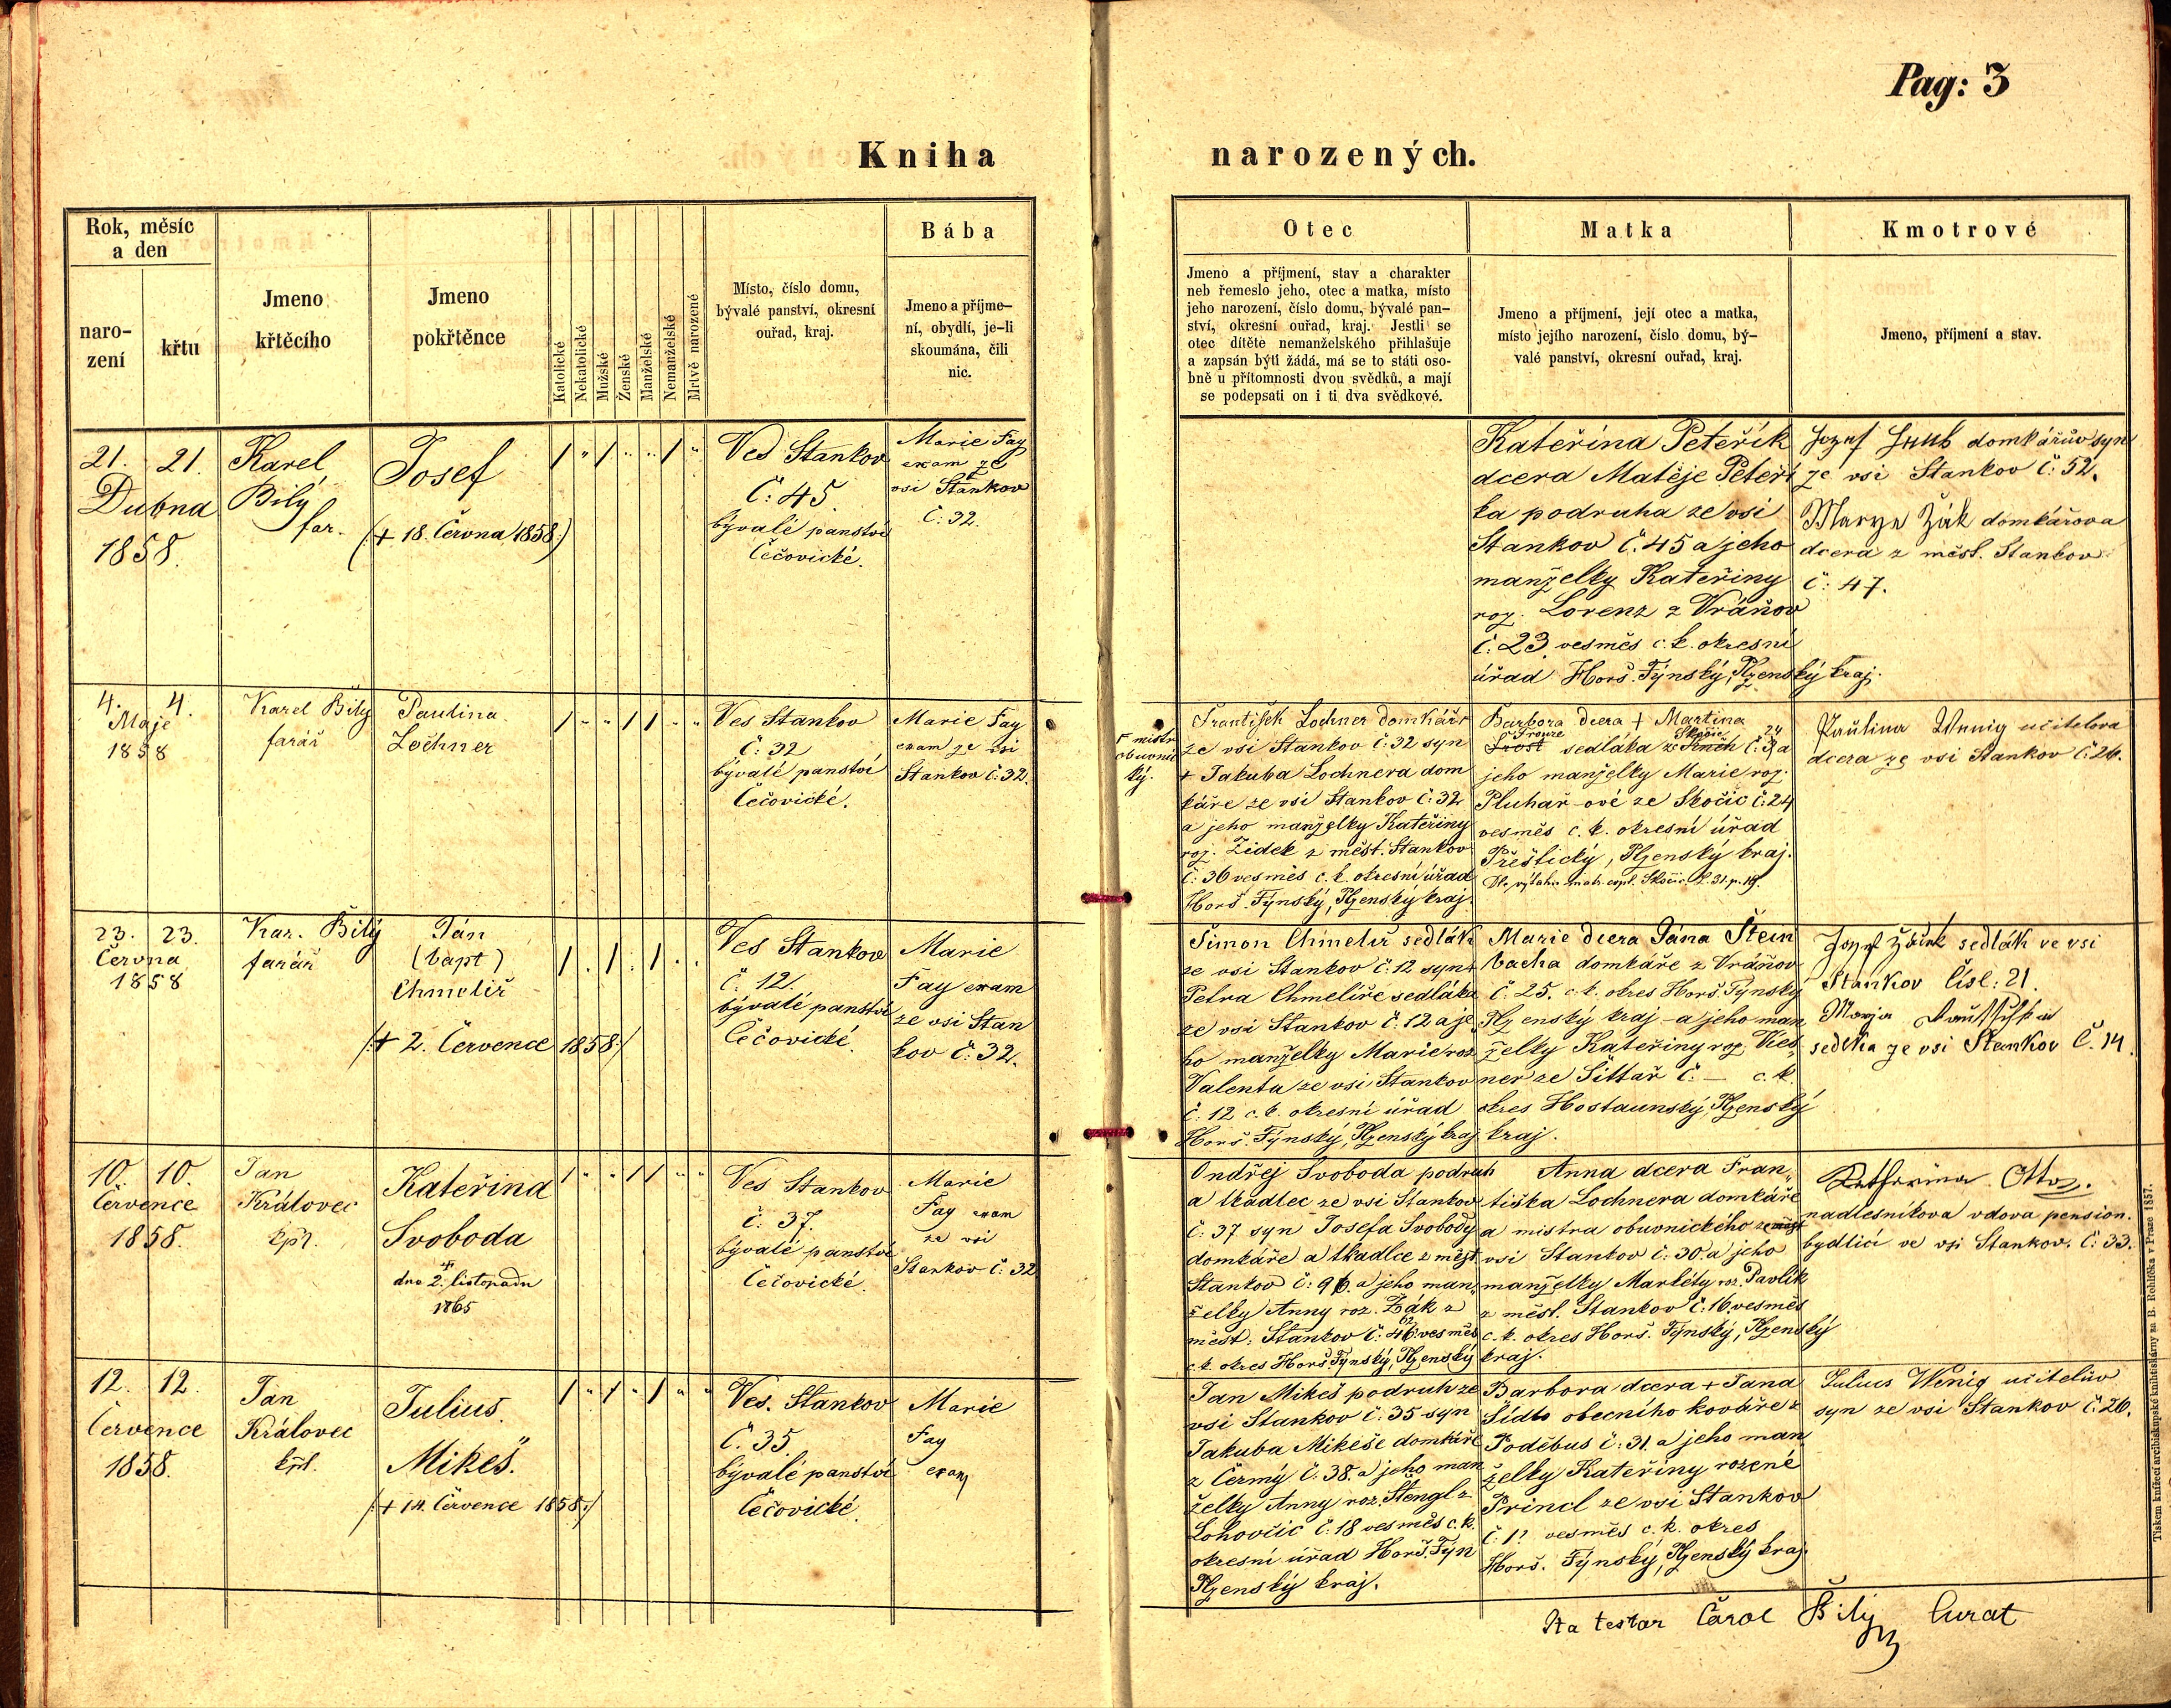 Pag: 3
Kniha narozených.
Rok, měsíc
a den
naro-
zení
křtu
Jmeno
křtěcího
Jmeno
pokřtěnce
Katolické
Nekatolické
Mužské
Ženské
Manželské
Nemanželské
Mrtvě narozené
Místo, číslo domu,
bývalé panství, okresní
ouřad, kraj.
Bába
Jmeno a příjme-
ní, obydlí, je-li
skoumána, čili
nic.
Otec
Jmeno a příjmení, stav a charakter
neb řemeslo jeho, otec a matka, místo
jeho narození, číslo domu, bývalé pan-
ství, okresní ouřad, kraj. Jestli se
otec dítěte nemanželského přihlašuje
a zapsán býti žádá, má se to státi oso-
bně u přítomnosti dvou svědků, a mají
se podepsati on i ti dva svědkové.
Matka
Jmeno a příjmení, její otec a matka,
místo jejího narození, číslo domu, bý-
valé panství, okresní ouřad, kraj.
Kmotrové
Jmeno, příjmení a stav.
21. 21.
Dubna
1858.
Karel
Bílý
far.
Josef
(+ 18. Června 1858:)
Ves Stankov
č: 45.
bývalé panství
Čečovické.
Marie Fay
exam ze
vsi Stankov
č: 32.
Kateřina Peteřík
dcera Matěje Peteří
ka podruha ze vsi
Stankov č. 45 a jeho
manželky Kateřiny
roz. Lorenz z Vráňov
č: 23. vesměs c. k. okresní
úřad Horš. Týnský, Plzenský kraj.
Jozef domkářův syn
ze vsi Stankov č: 52.
Marya Žák domkářova
dcera z měst. Stankov
č: 47.
4. 4.
Máje
1858
Karel Bílý
farář
Paulina
Lochner
Ves Stankov
č: 32
bývalé panství
Čečovické.
Marie Fay
exam ze vsi
Stankov č: 32.
+ mistr
obuvnic
ký.
František Lochner domkář+
ze vsi Stankov č: 32 syn
+ Jakuba Lochnera dom
káře ze vsi Stankov č: 32
a jeho manželky Kateřiny
roz. Židek z měst. Stankov
č: 36 vesměs c. k. okresní úřad
Horš. Týnský, Plzenský kraj.
Barbora dcera + Martina
Trost sedláka ze č: a
Skočic 24
jeho manželky Marie roz.
Pluhař-ové ze Skočic č: 24
vesměs c. k. okresní úřad
Přeštický, Plzenský kraj.
Paulina Wenig učitelova
dcera ze vsi Stankov č: 26.
23. 23.
Června
1858
Kar. Bílý
farář
Ján
(bapt)
Chmelíř
/:+ 2. Července 1858:/
Ves Stankov
č: 12.
bývalé panství
Čečovické.
Marie
Fay exam
ze vsi Stan
kov č: 32.
Šimon Chmelíř sedlák
ze vsi Stankov č: 12 syn +
Petra Chmelíře sedláka
ze vsi Stankov č. 12 a je
ho manželky Marie roz
Valenta ze vsi Stankov
č: 12 c. k. okresní úřad
Horš. Týnský, Plzenský kraj
Marie dcera Jána Štein
bacha domkáře z Vráňov
č: 25. c. k. okres Horš. Týnský
Plzenský kraj - a jeho man
želky Kateřiny roz. Vies„
ner ze Sittař č: — c. k.
okres Hostaunský, Plzenský
kraj.
Jozef sedlák ve vsi
Stankov Čísl: 21.
Marja
sedlka ze vsi Stankov Č. 14.
10. 10.
Července
1858.
Jan
Královec
kpl.
Kateřina
Svoboda
†
dne 2. listopadu
1865
Ves Stankov
č: 37.
bývalé panství
Čečovické.
Marie
Fay exam
ze vsi
Stankov č: 32
Ondřej Svoboda podruh
a tkadlec ze vsi Stankov
č: 37 syn Josefa Svobody
domkáře a tkadlce z měst
Stankov č: 96. a jeho man„
želky Anny roz. Žák z
měst: Stankov č: 46. vesměs
62
c. k. okres Horš. Týnský, Plzenský
Anna dcera Fran„
tiška Lochnera domkáře
a mistra obuvnického ze
vsi Stankov č: 30. a jeho
manželky Markéty roz. Pavlík
z měst. Stankov č: 16 vesměs
c. k. okres Horš. Týnský, Plzenský
kraj.
Katharina Otto
nadlesníkova vdova pension.
bydlicí ve vsi Stankov. č: 33.
12. 12.
Července
1858.
Jan
Královec
kpl.
Julius
Mikeš.
/:+ 14. Července 1858:/
Ves. Stankov
č. 35
bývalé panství
Čečovické.
Marie
Fay
exam
Jan Mikeš podruh ze
vsi Stankov č: 35 syn
Jakuba Mikeše domkáře
z Čermý č: 38. a jeho man
želky Anny roz. Štengl z
Lohovčic č: 18 vesměs c. k.
okresní úřad Horš. Týn
Plzenský kraj.
Barbora dcera + Jana
Šídlo obecního kováře z
Poděbus č: 31. a jeho man
želky Kateřiny rozené
Princl ze vsi Stankov
č. 1? vesměs c. k. okres
Horš. Týnský, Plzenský kraj
Julius Wenig učitelův
syn ze vsi Stankov č: 26.
Ita testor Carol Bílý Curat
Tiskem knížecí arcibiskupské knihtiskárny za B. Rohlíčka v Praze 1857.